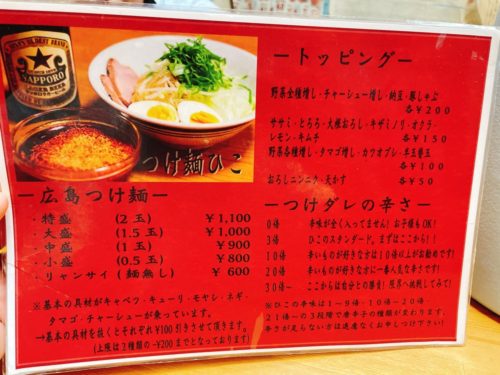 SAPPORO
つけ麺ひこ
ートッピングー
野菜全種増し・チャーシュー増し・納豆・豚しゃぶ
各￥200
ササミ・とろろ・大根おろし・キザミノリ・オクラ・
レモン・キムチ 各￥150
野菜各種増し・タマゴ増し・カツオブシ・半玉替玉
各￥100
おろしニンニク・天かす 各￥50
ー広島つけ麺ー
・特盛 (2玉) ￥1,100
・大盛 (1.5玉) ￥1,000
・中盛 (1玉) ￥900
・小盛 (0.5玉) ￥800
・リャンサイ(麺無し) ￥600
※基本の具材がキャベツ・キューリ・モヤシ・ネギ・
タマゴ・チャーシューが乗っています。
→基本の具材を抜くとそれぞれ¥100引きさせて頂きます。
(上限は2種類の-¥200までとなっております)
ーつけダレの辛さー
0倍 辛味が全く入ってません!お子様もOK!
3倍 ひこのスタンダード。まずはここから!!
10倍 辛いものが好きな方は10倍以上がお勧めです!
20倍 辛いものが好きな方に一番人気な辛さです!
30倍～ ここからは自分との勝負!限界へ挑戦してみて!
※ひこの辛味は1～9倍・10倍～20倍・
21倍～の3段階で唐辛子の種類が変わります。
辛さが足らない方は遠慮なくお申しつけ下さい!